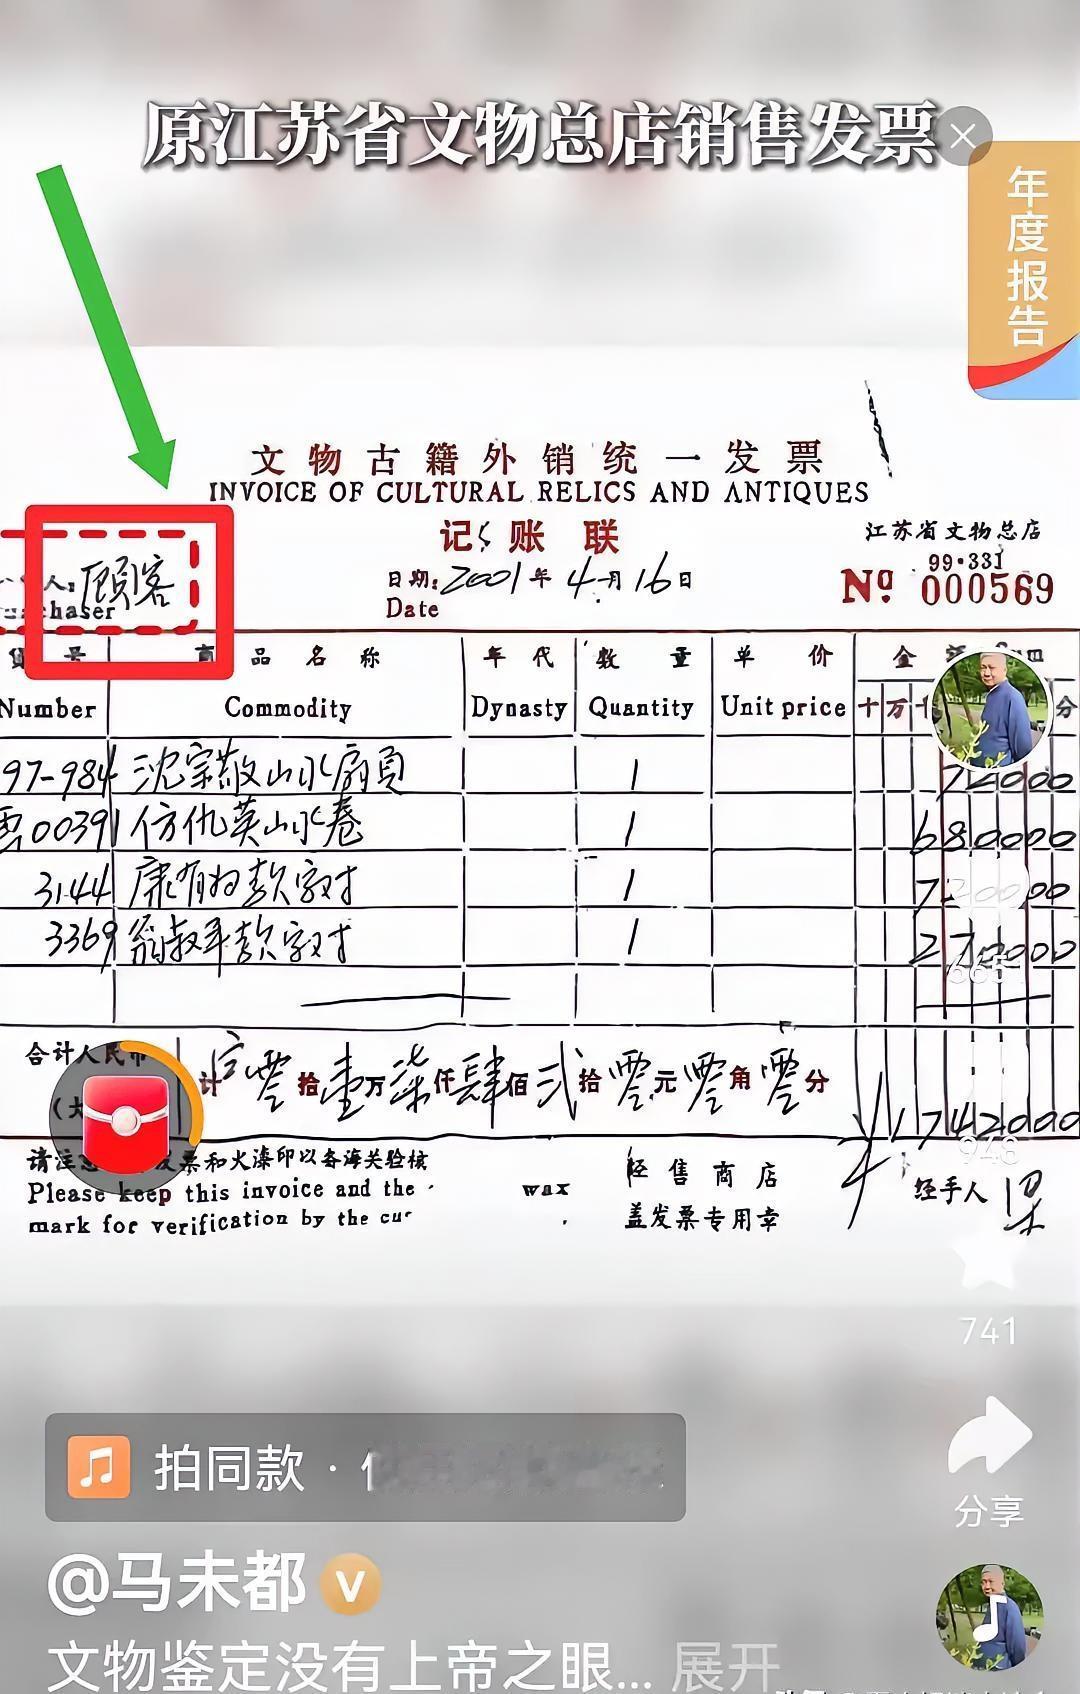 原江苏省文物总店销售发票
年度报告
文物古籍外销统一发票
INVOICE OF CULTURAL RELICS AND ANTIQUES
记账联
江苏省文物总店
99·331
Nº 000569
人: 顾客
日期: 2001年4月16日
Date
货号 商品名称 年代 数量 单价 金额 Sum
Number Commodity Dynasty Quantity Unit price 十万 分
97-984 沈宗敬山水扇页 1
00391 仿仇英山水卷 1 680000
3144 康有为款字对 1
3369 翁叔平款字对 1
6651
合计人民币
计 零拾壹万柒仟肆佰贰拾零元零角零分 1742000
948
请注 发票和火漆印以备海关验核
Please keep this invoice and the wax
mark for verification by the cu
经售商店
盖发票专用章
经手人
741
分享
拍同款
@马未都
文物鉴定没有上帝之眼... 展开